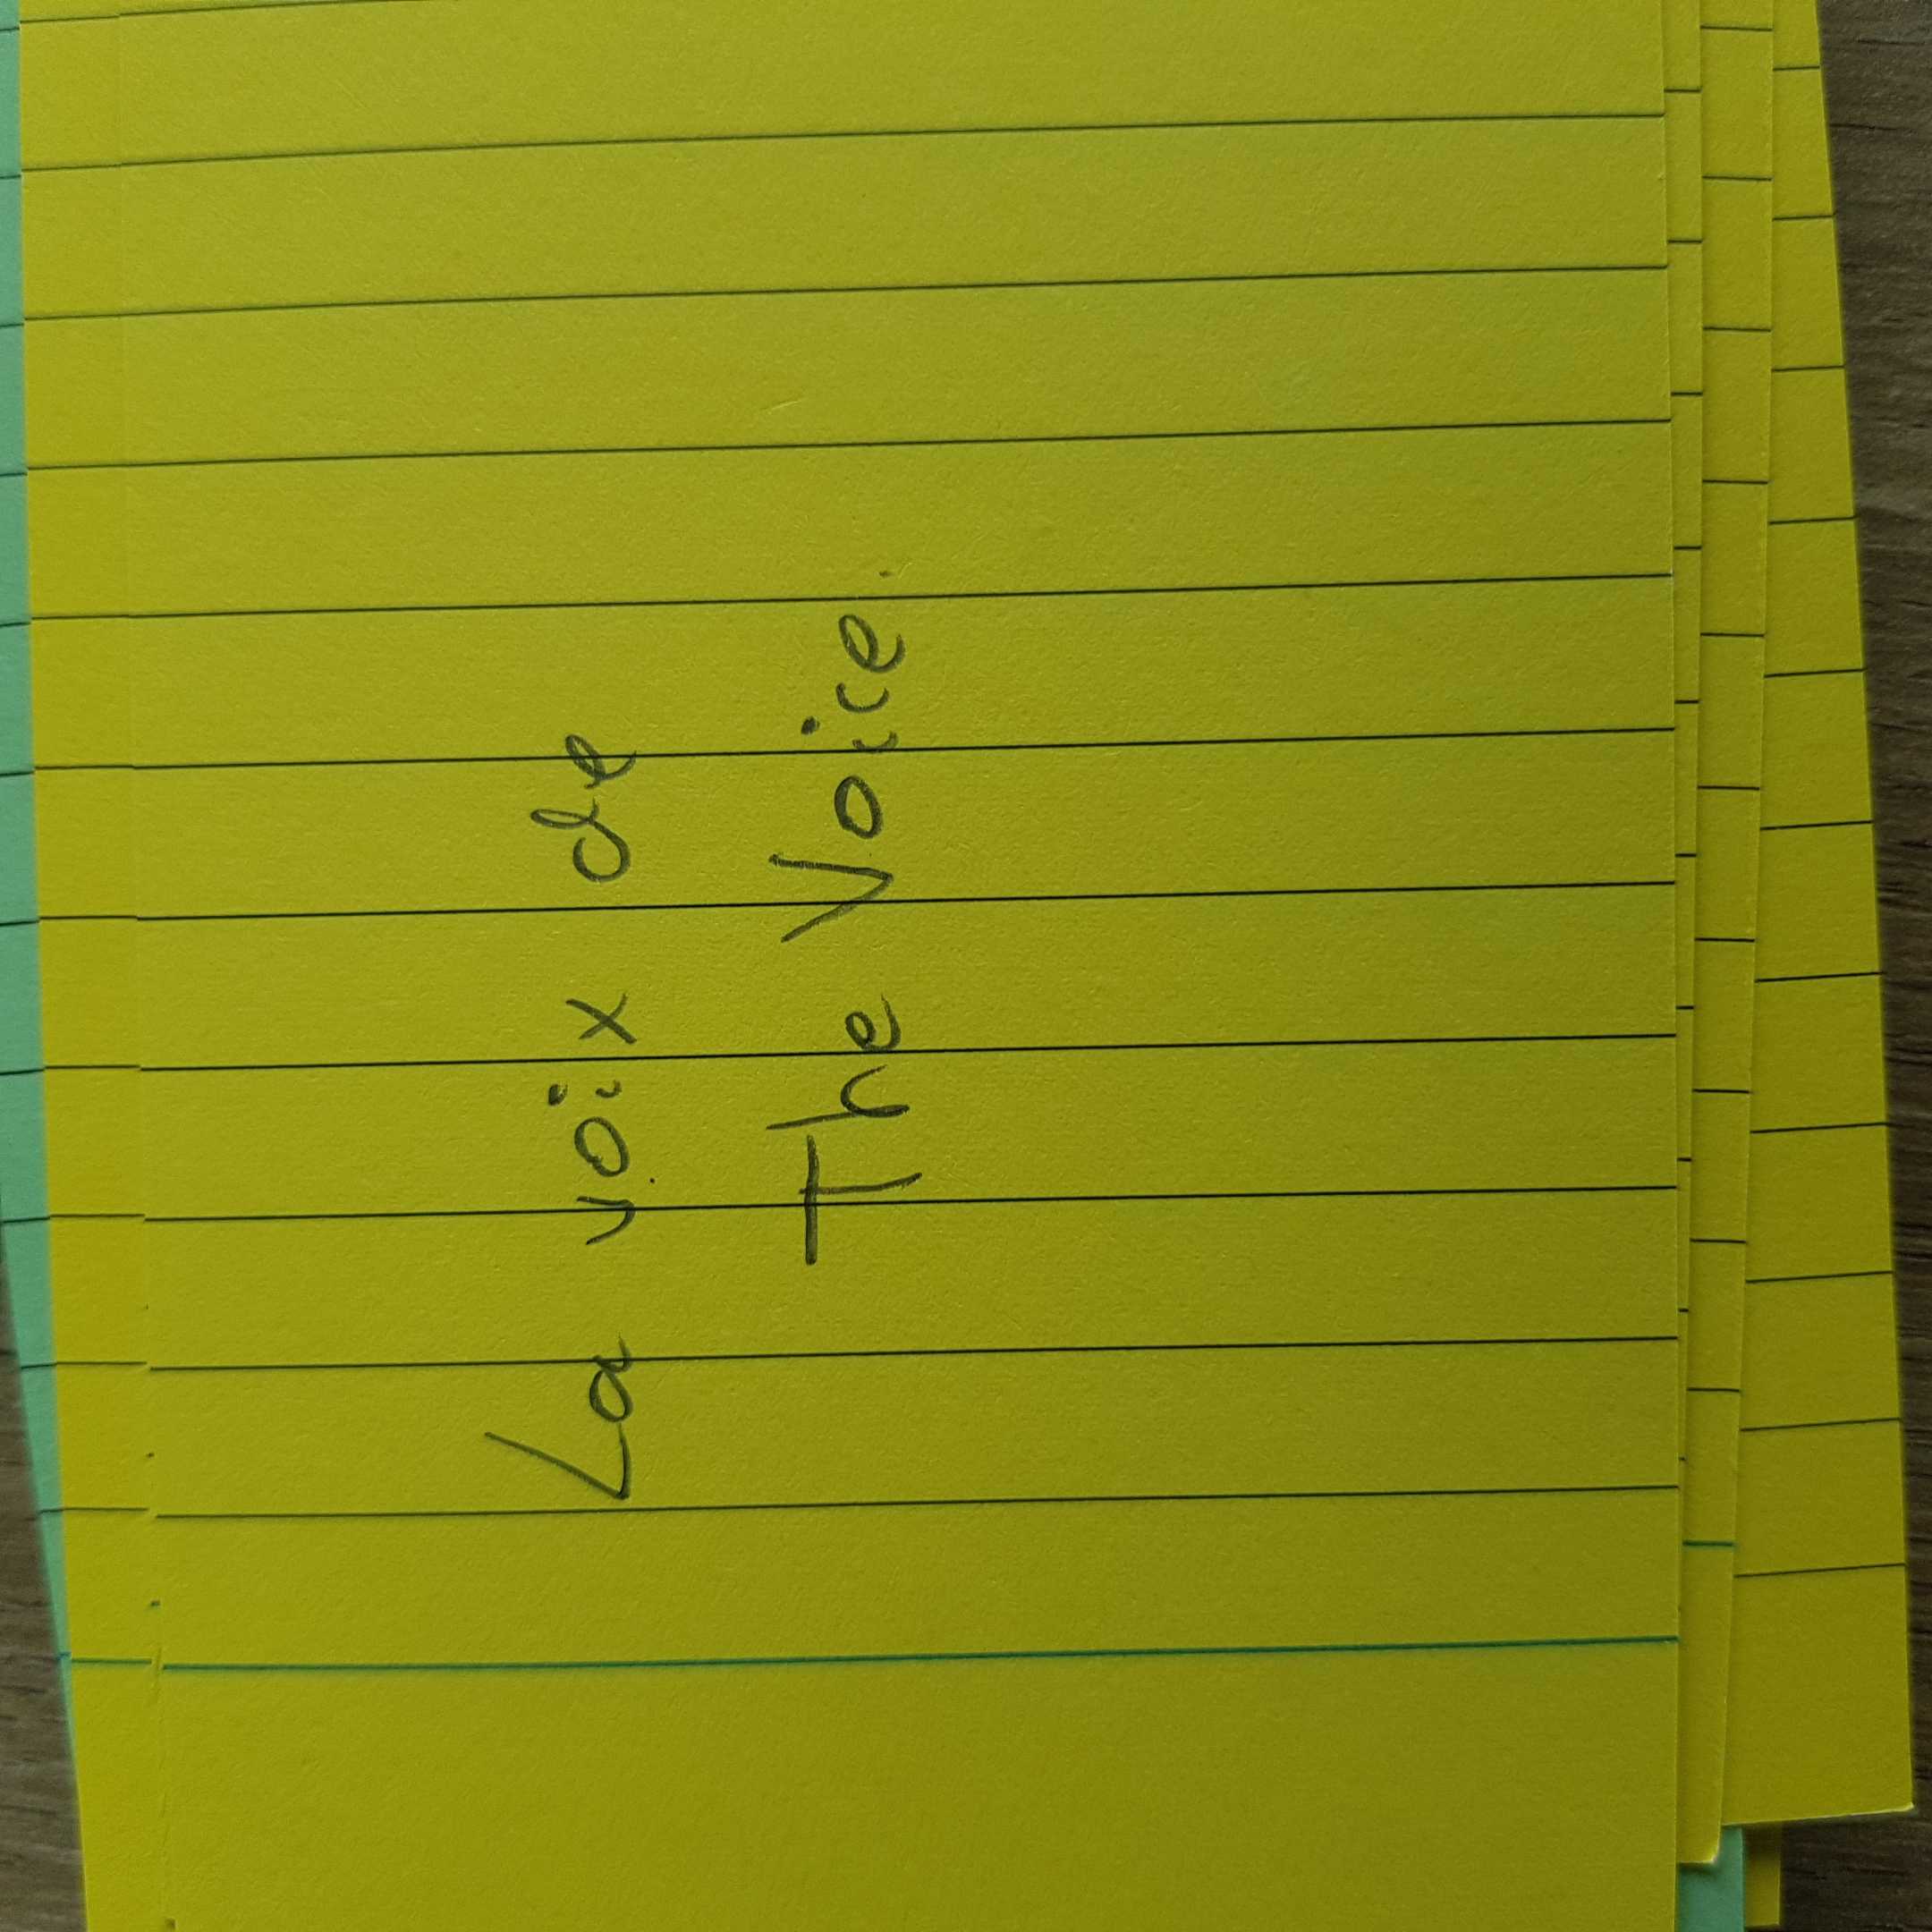 La voix de
The Voice.